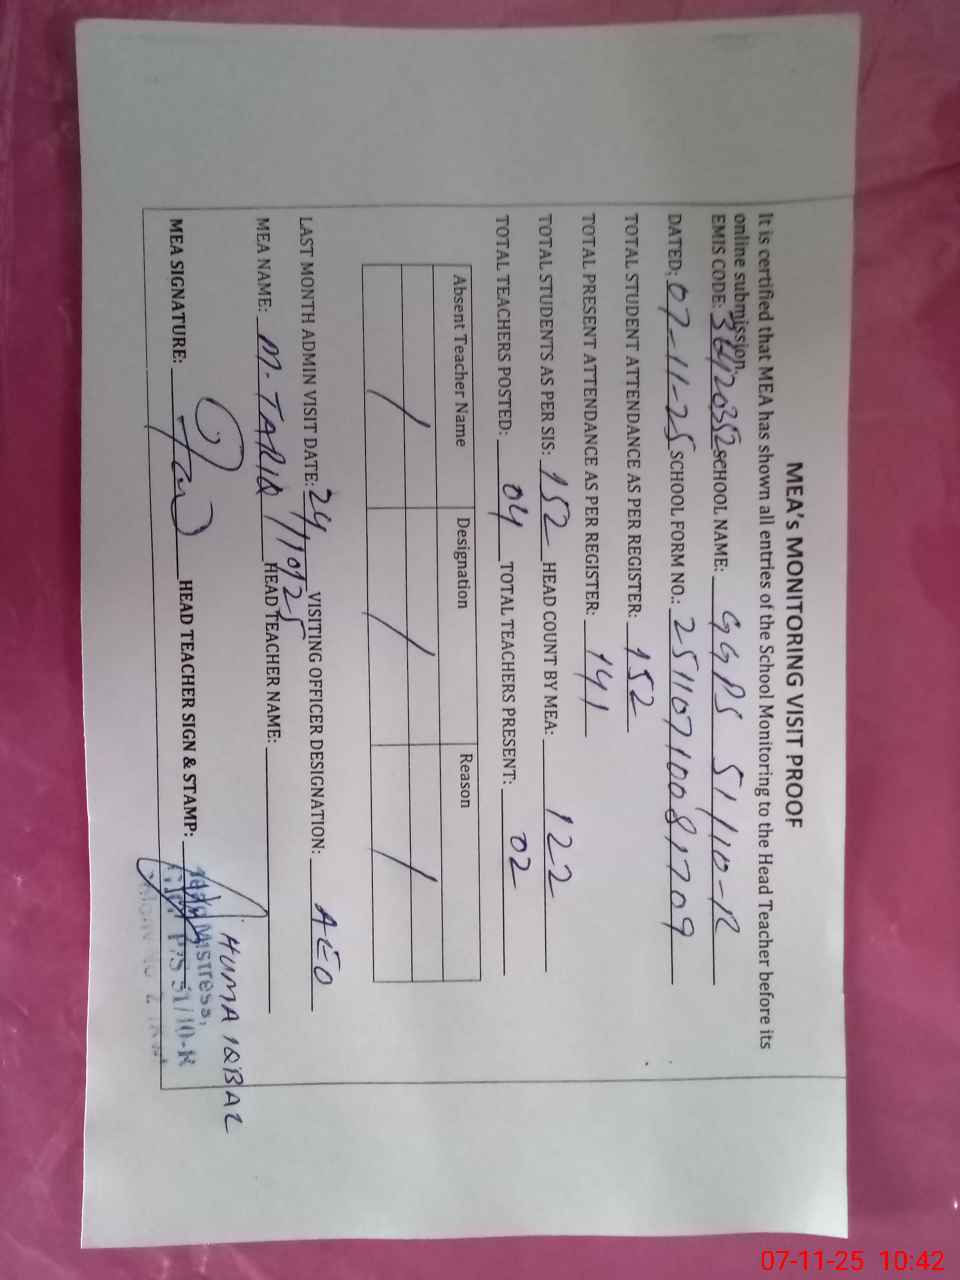 MEA's MONITORING VISIT PROOF
It is certified that MEA has shown all entries of the School Monitoring to the Head Teacher before its
online submission.
EMIS CODE: 36420352 SCHOOL NAME: GGPS 51/10-R
DATED: 07-11-25 SCHOOL FORM NO.: 25110710081709
TOTAL STUDENT ATTENDANCE AS PER REGISTER: 152
TOTAL PRESENT ATTENDANCE AS PER REGISTER: 141
TOTAL STUDENTS AS PER SIS: 152 HEAD COUNT BY MEA: 122
TOTAL TEACHERS POSTED: 04 TOTAL TEACHERS PRESENT: 02
Absent Teacher Name Designation Reason
/ / /
LAST MONTH ADMIN VISIT DATE: 24/10/25 VISITING OFFICER DESIGNATION: AEO
MEA NAME: M. TARIQ HEAD TEACHER NAME:
HUMA IQBAL
MEA SIGNATURE: HEAD TEACHER SIGN & STAMP:
Mistress,
P/S 51/10-R
07-11-25 10:42